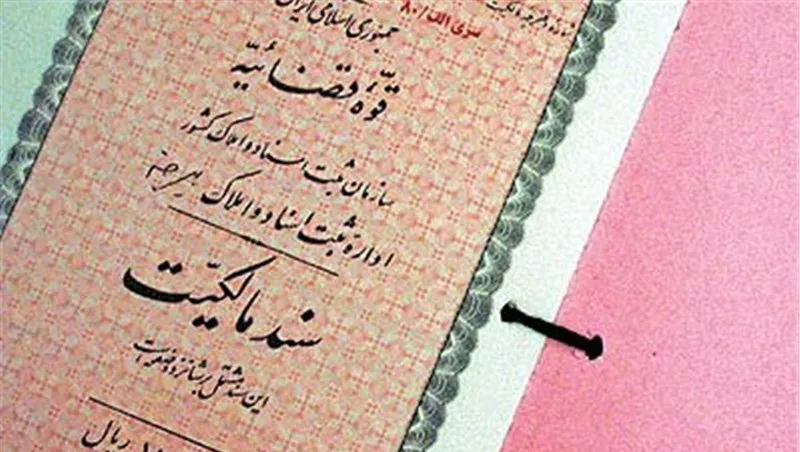 شماره دفترچه مالکیت
سری الف/۸۰
جمهوری اسلامی ایران
قوّهٔ قضائیّه
سازمان ثبت اسناد و املاک کشور
ادارهٔ ثبت اسناد و املاک
سند مالکیّت
این سند مشتمل بر شانزده صفحه است
ریال